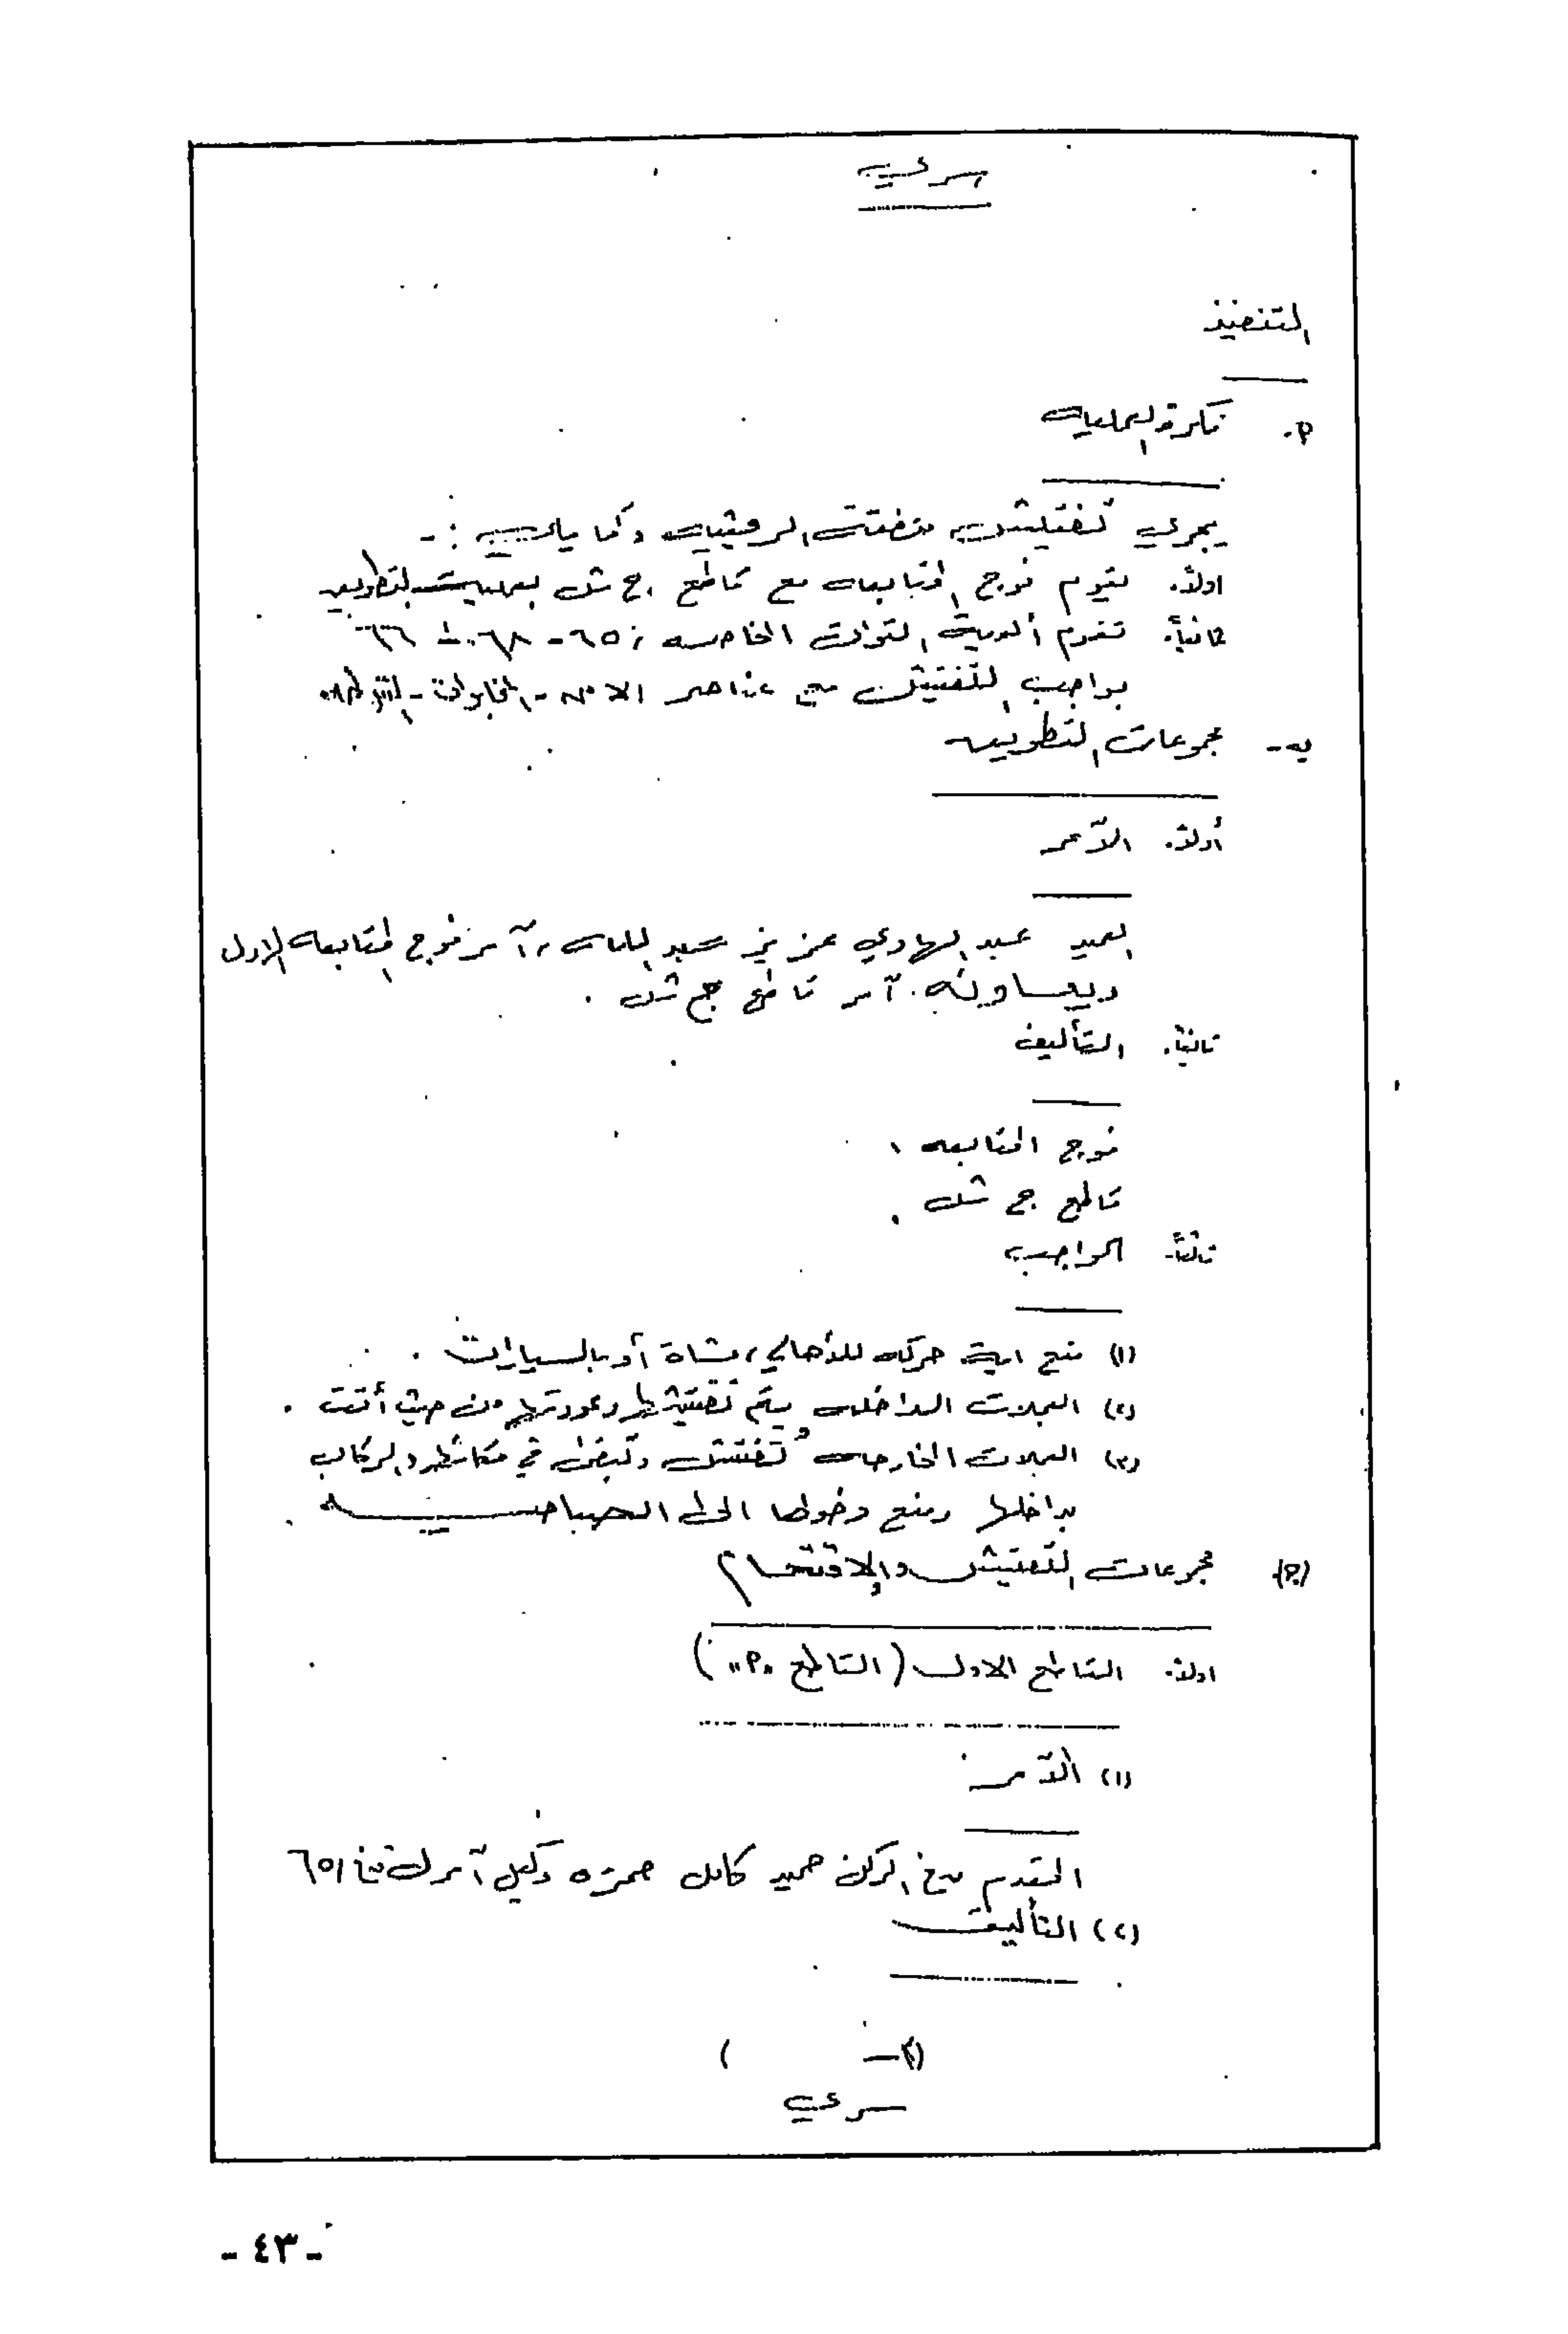 سري
التنفيذ
أ. فكرة العملية
يجري تفتيش منطقة الرقيبات وكما يلي :-
اولاً. يقوم فوج المتابعه مع قاطع ج ش بعملية التطويق
ثانياً. تقوم ألوية القوات الخاصه ٦٥ - ٦٨ ٦٦
بواجب التفتيش مع عناصر الامن - المخابرات - الشرطه
ب - مجموعات التطويق
أولاً. الآمر
العميد عبد الهادي عزيز عبد ، آمر فوج المتابعه الاول
ويعاونه. آمر قاطع ج ش .
ثانياً. التأليف
فوج المتابعه ١
قاطع ج ش .
ثالثاً- الواجب
(١) منع اية حركه للأهالي ، مشاة أو بالسيارات .
(٢) العجلات الداخله يتم تفتيشها وعودتها من حيث أتت .
(٣) العجلات الخارجه تفتش وتبقى في مكانها والركاب
بداخلها ومنع دخولها الى الصباح .
(ج) مجموعات التفتيش والاقتحام
اولاً. القاطع الاول (القاطع "أ")
(١) الآمر
المقدم ق خ الركن حميد كامل حمزه وكيل آمر ل ق خ / ٦٥
(٢) التأليف
(٢ - )
سري
- ٤٣ -